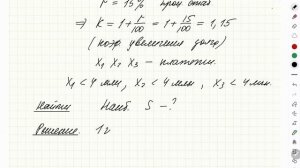 r = 15%
⇒ K = 1 + r/100 = 1 + 15/100 = 1,15
(коэф. увеличения долга)
x₁ x₂ x₃ – платежи.
x₁ < 4 млн, x₂ < 4 млн, x₃ < 4 млн.
Найти Наиб. S – ?
Решение. 1г